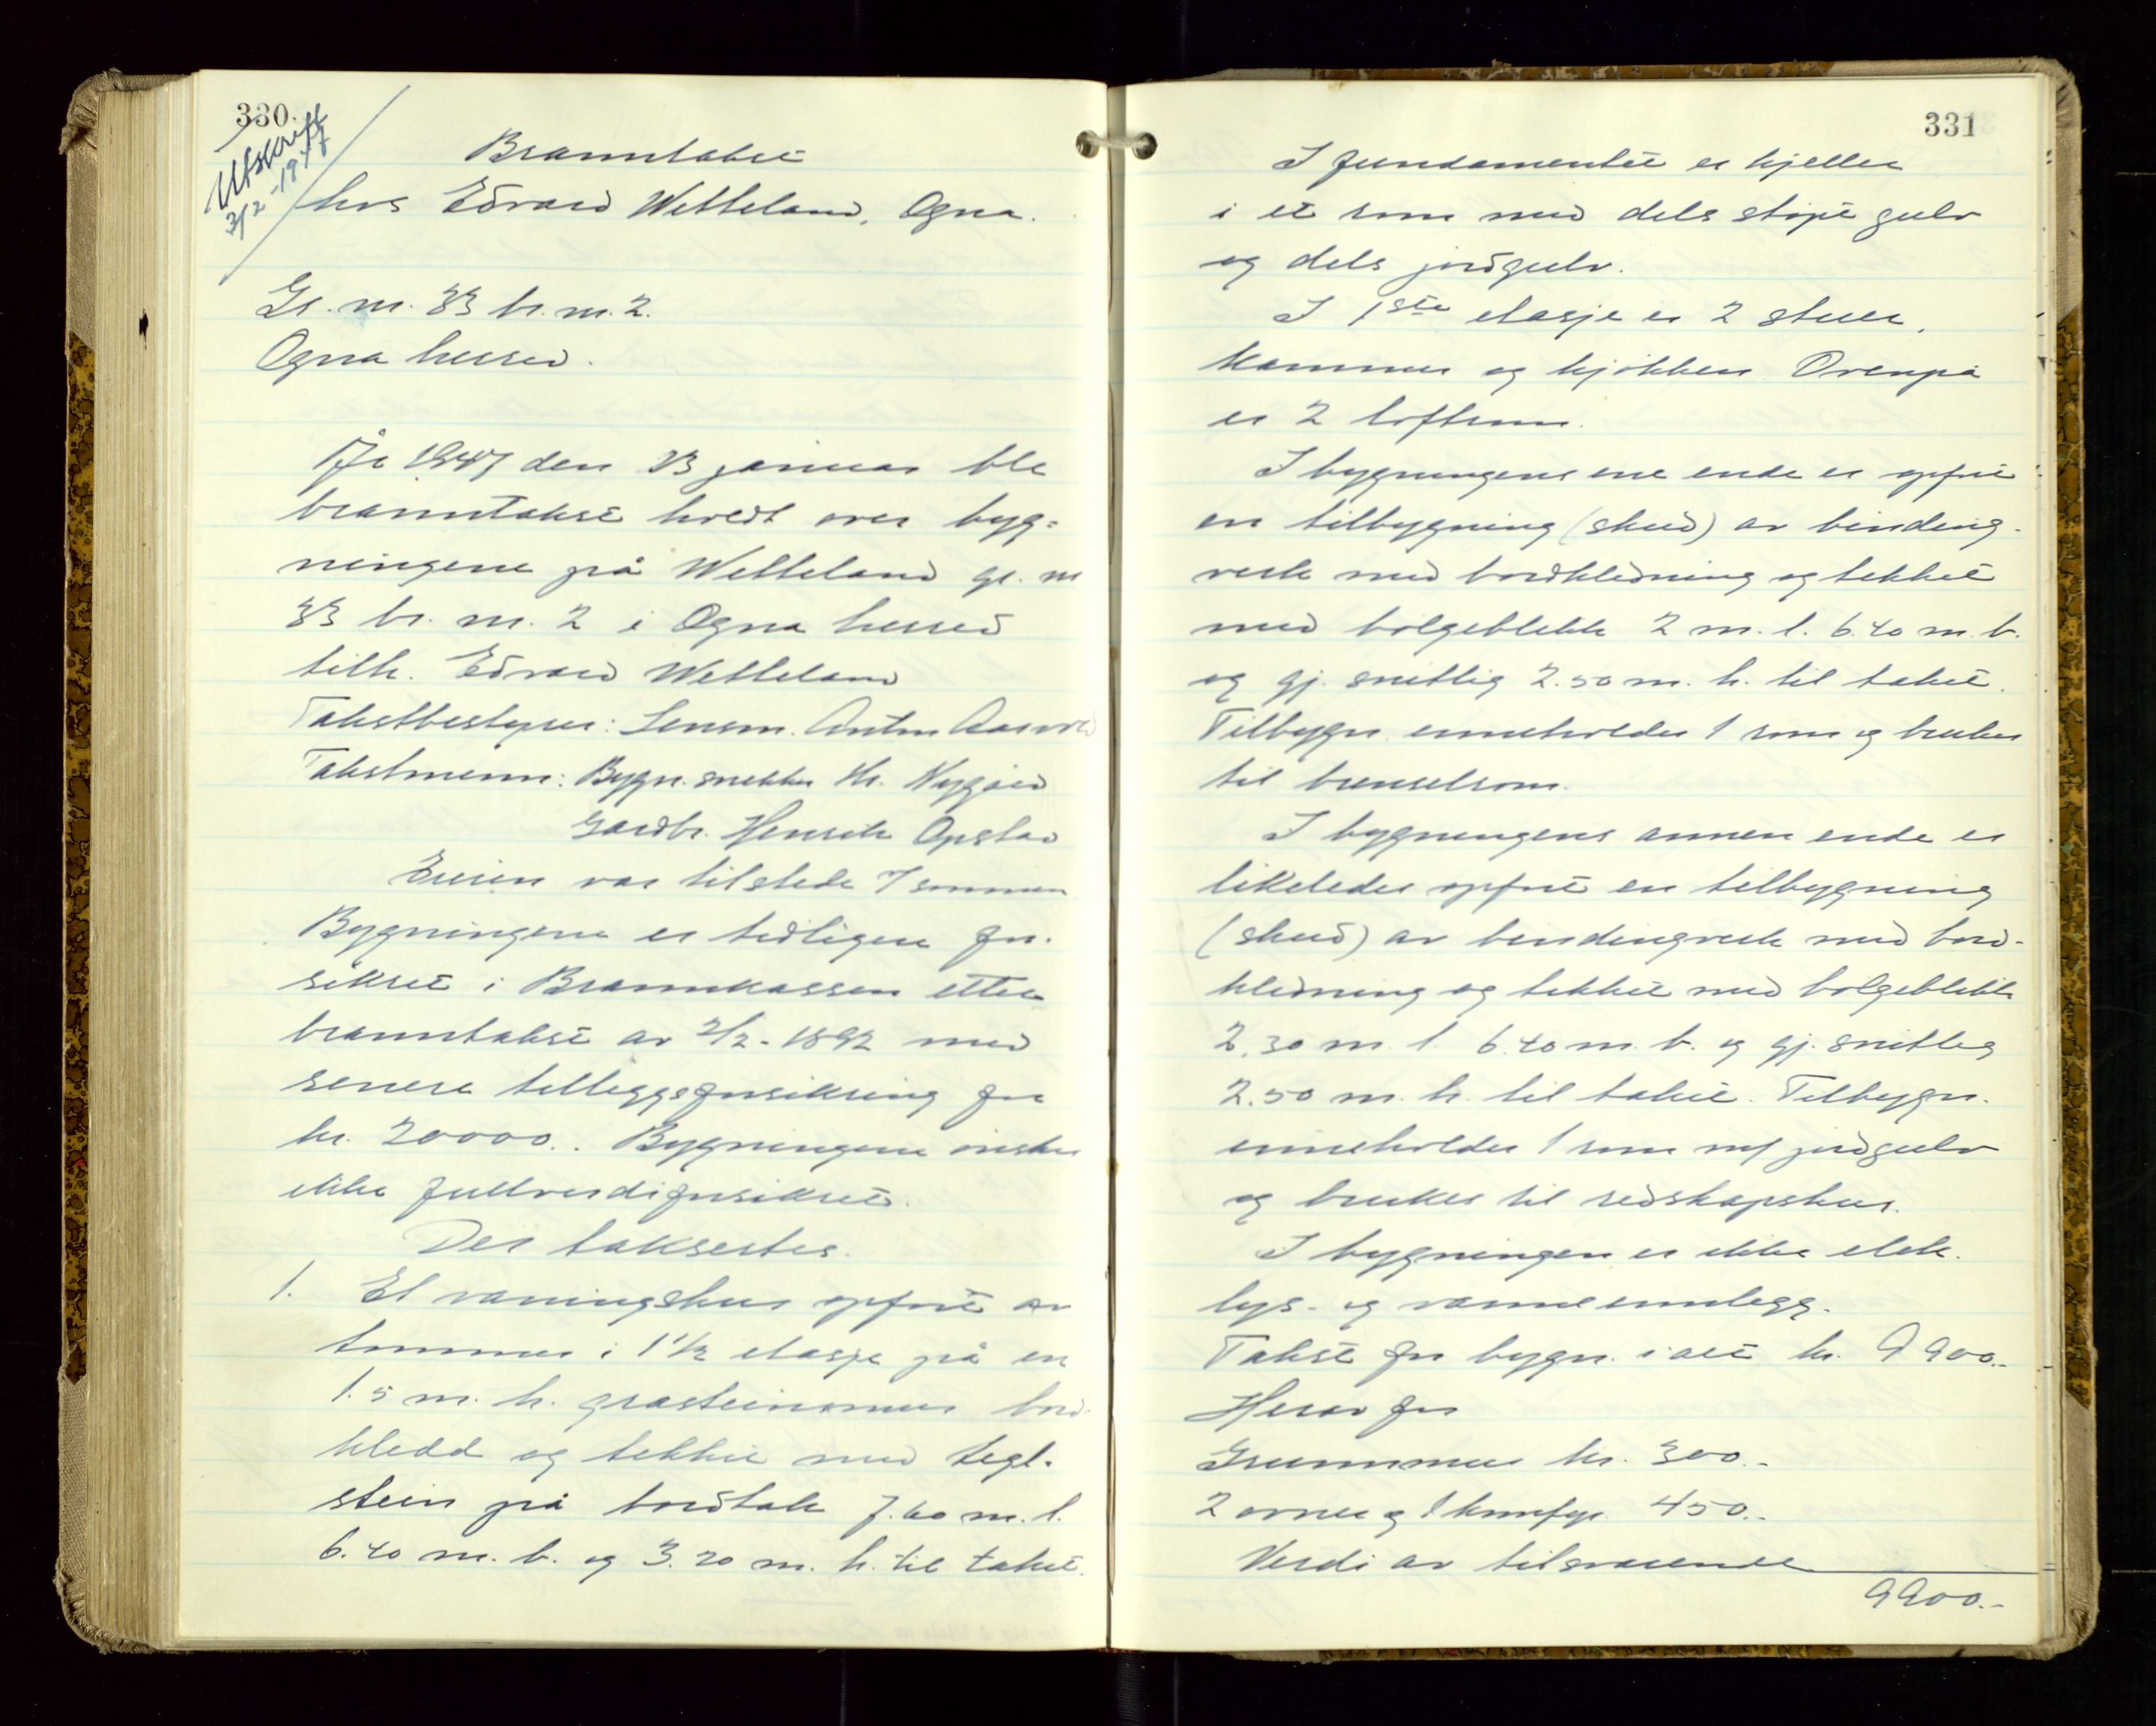 330.
Utskrift
3/2-1947
Branntakst
hos Edvard Wetteland, Ogna.
Gr. nr. 33 br. nr. 2.
Ogna herred.
År 1947 den 23 januar ble
branntakst holdt over byg=
ningene på Wetteland gr. nr
33 br. nr. 2 i Ogna herred
tilh. Edvard Wetteland
Takstbestyrer: Lensm. Anton
Takstmenn: Bygn. snekker Kr. Nygård
Gardbr. Henrik Opstad
Eieren var tilstede
Bygningene er tidligere for-
sikret i Brannkassen etter
branntakst av 2/2-1892 med
senere tilleggsforsikring for
kr. 20000.. Bygningene ønskes
ikke fullverdiforsikret.
Der takseres.
1. Et våningshus opført av
tømmer i 1 1/2 etasje på en
1.5 m. h. gråsteinsmur bord-
kledd og tekket med tegl-
stein på bordtak 7.60 m. l.
6.40 m. b. og 3.20 m. h. til taket.
331
I fundamentet er kjeller
i et rom med dels støpt gulv
og dels jordgulv.
I 1ste etasje er 2 stuer,
kammer og kjøkken Ovenpå
er 2 loftrom.
I bygningens ene ende er opført
en tilbygning (skud) av binding-
verk med bordkledning og tekket
med bølgeblikk 2 m. l. 6.40 m. b.
og gj. snittlig 2.50 m. h. til taket.
Tilbygn. inneholder 1 rom og brukes
til brenselrom.
I bygningens annen ende er
likeledes opført en tilbygning
(skud) av bindingverk med bord-
kledning og tekket med bølgeblikk
2.30 m. l. 6.40 m. b. og gj. snittlig
2.50 m. h. til taket. Tilbygn.
inneholder 1 rom m/ jordgulv
og brukes til redskapshus.
I bygningen er ikke elek.
lys- og vanninnlegg.
Takst for bygn. i alt kr. 9900.-
Herav for
Grunnmur kr. 300.-
2 ovner og 1 komfyr 450.-
Verdi av tilsvarende
9900.-